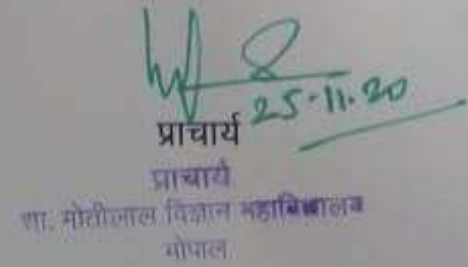 25.11.20
प्राचार्य
प्राचार्य
शा. मोतीलाल विज्ञान महाविद्यालय
भोपाल